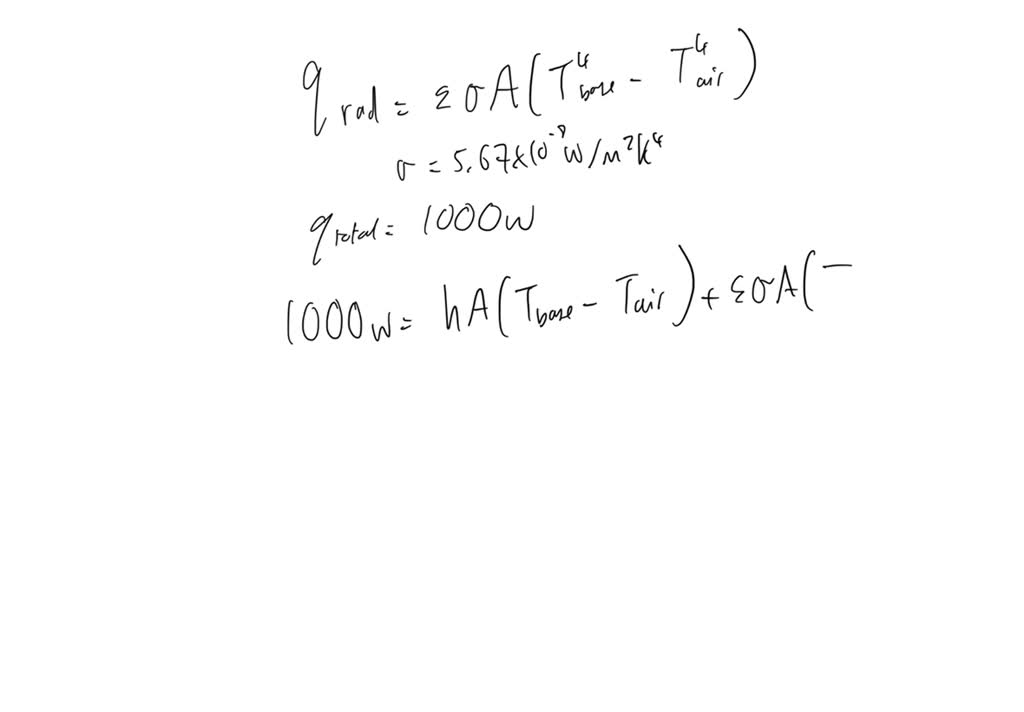 q rad = εσA(T⁴base - T⁴air)
σ = 5.67x10⁻⁸W/m²K⁴
q total = 1000W
1000W = hA(Tbase - Tair) + εσA(